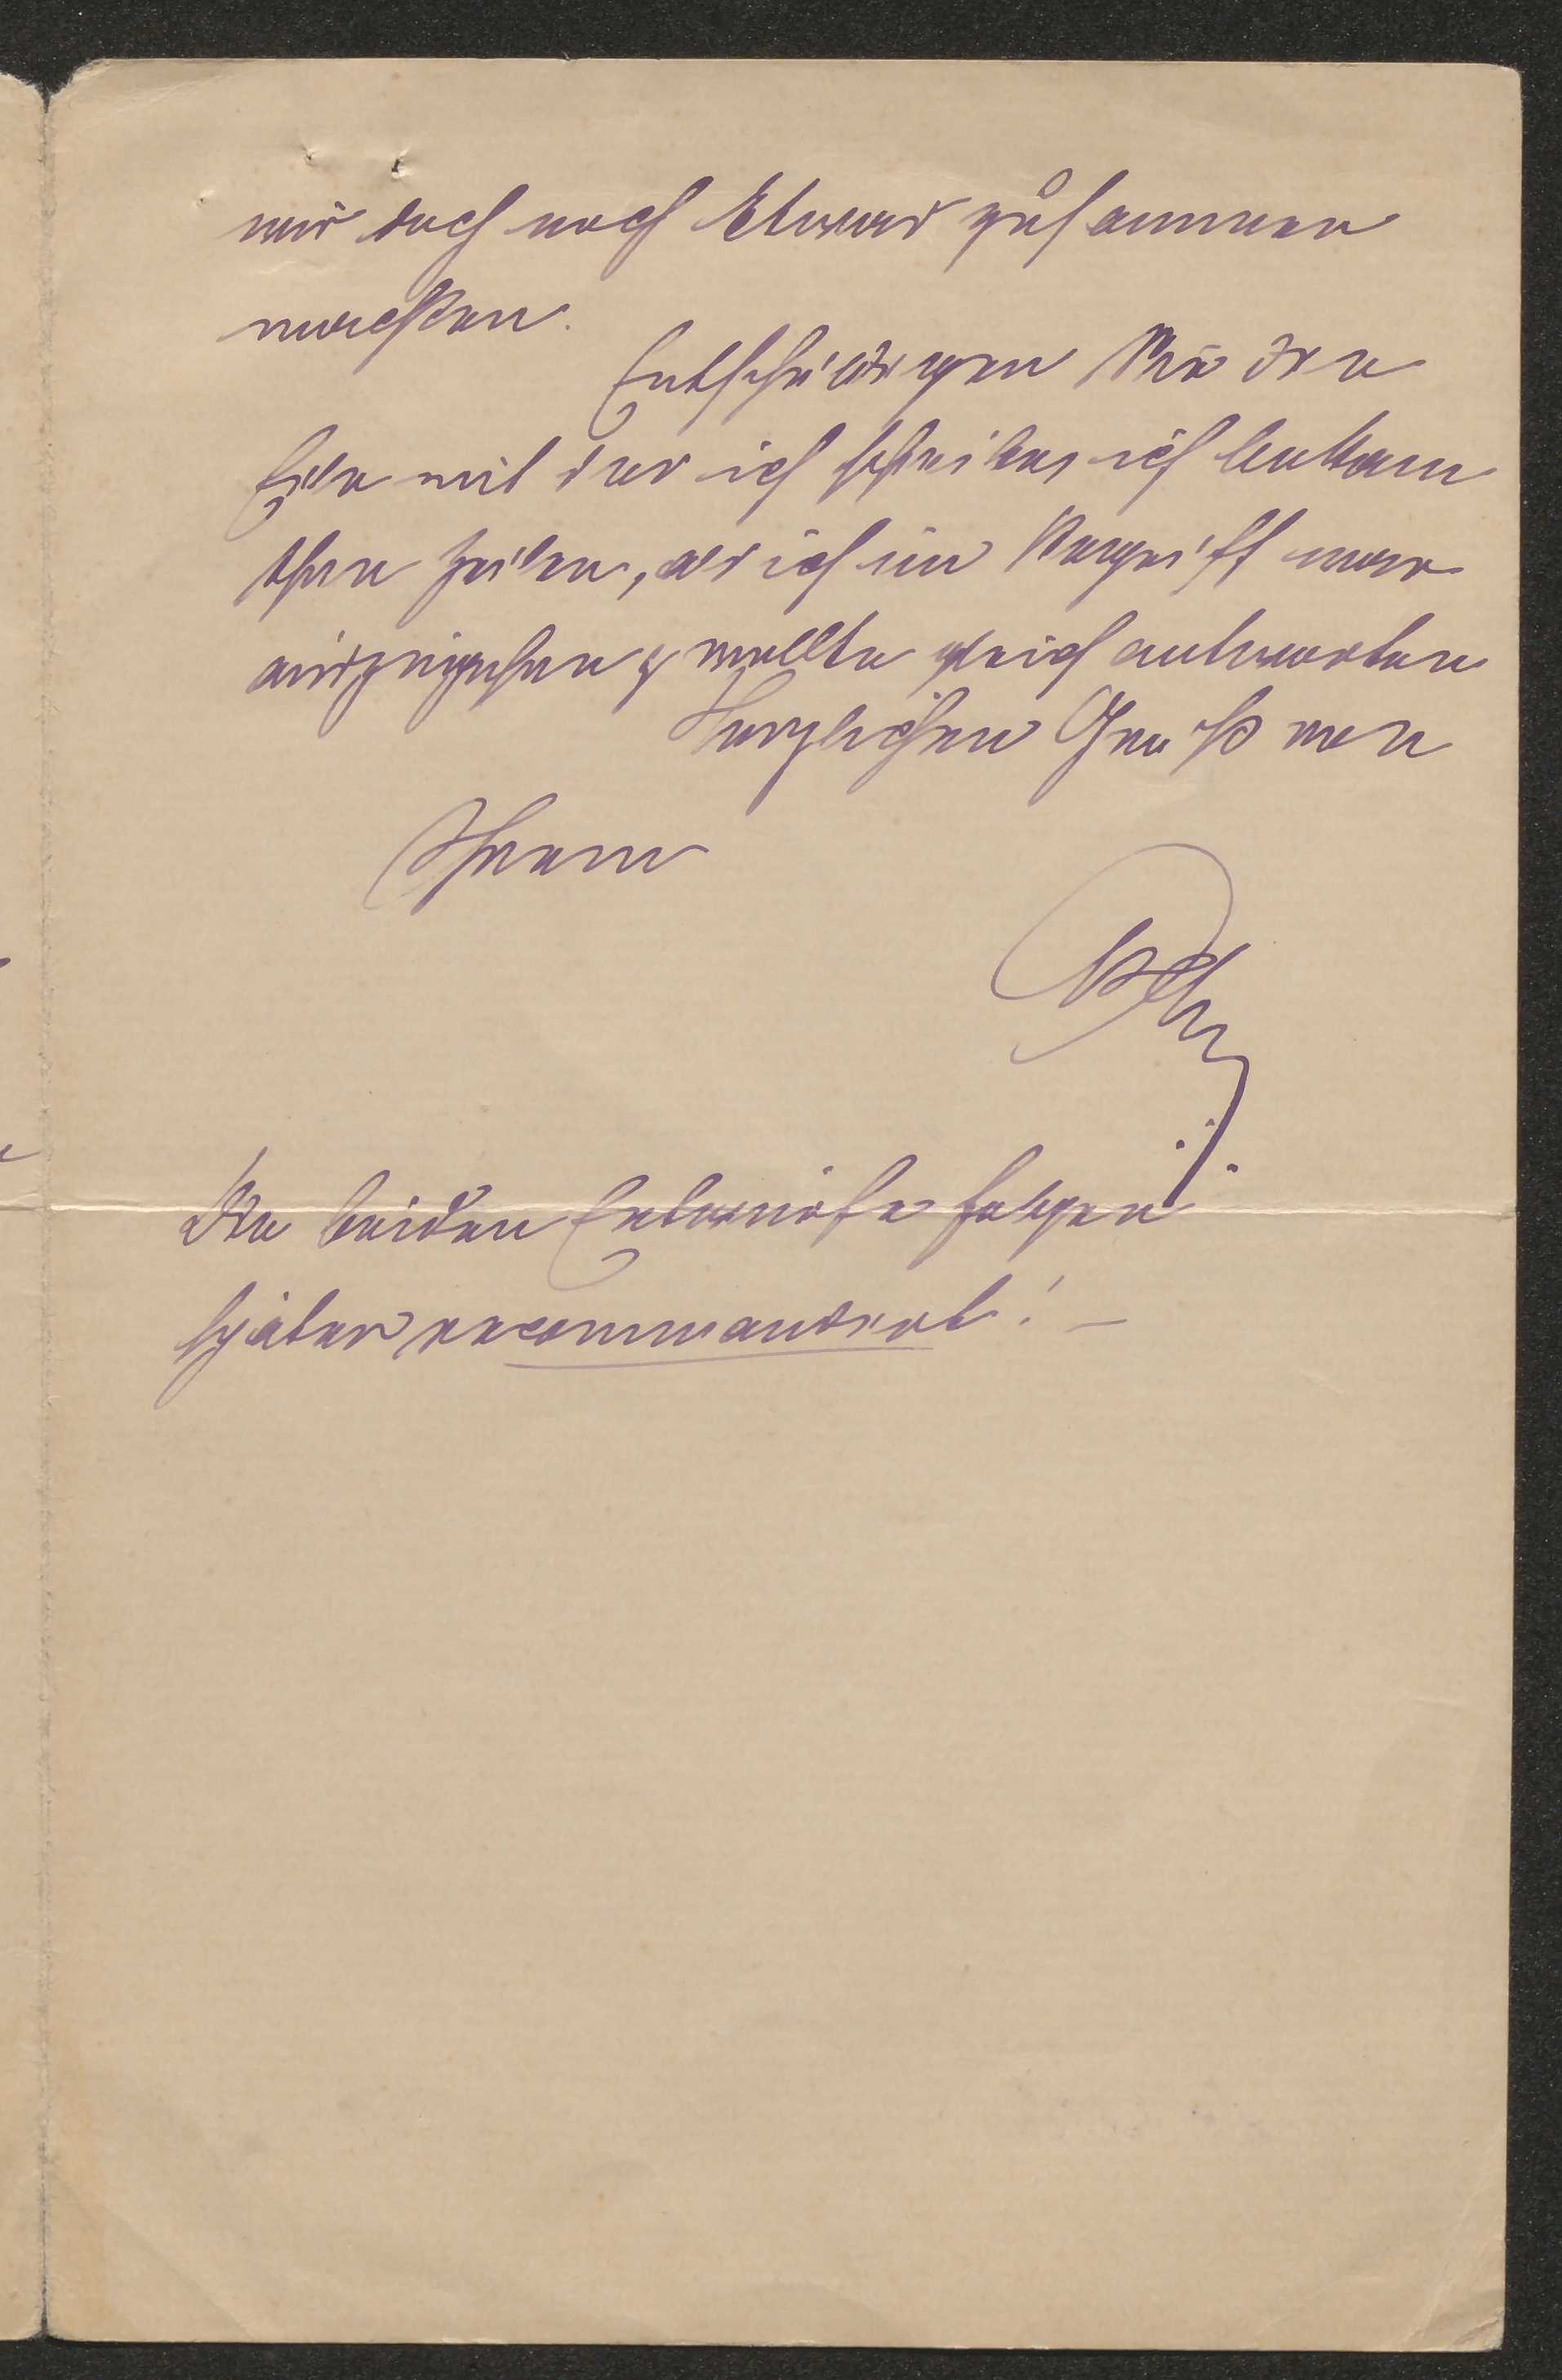 wir doch noch Etwas zusammen
machen.
Entschuldigen Sie die
Eile mit der ich schreibe, ich bekam
Ihre Zeilen, als ich im Begriff war
auszugehen & wollte gleich antworten
Herzlichen Gruß von
Ihrem
Die beiden Entwürfe folgen
später recommandirt! –